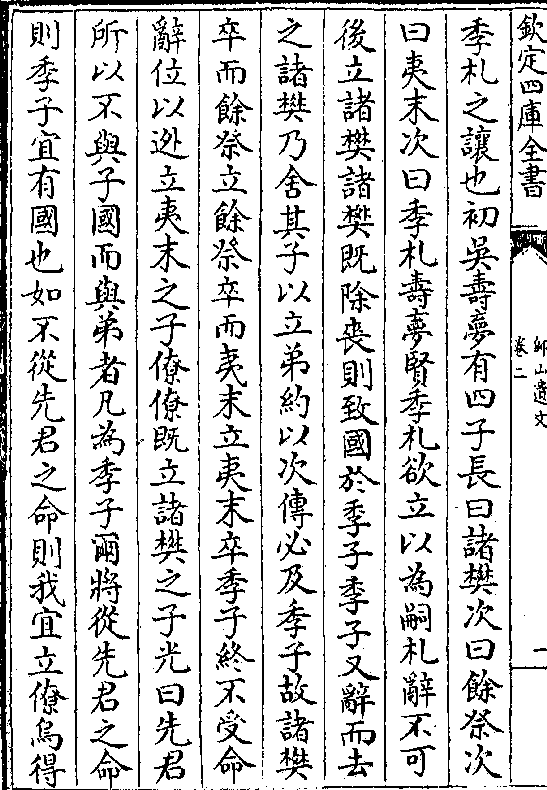 欽定四庫全書
師山遺文
卷二
一
季札之讓也初吳壽夢有四子長曰諸樊次曰餘祭次
曰夷末次曰季札壽夢賢季札欲立以為嗣札辭不可
後立諸樊諸樊既除喪則致國於季子季子又辭而去
之諸樊乃舍其子以立弟約以次傳必及季子故諸樊
卒而餘祭立餘祭卒而夷末立夷末卒季子終不受命
辭位以逃立夷末之子僚僚既立諸樊之子光曰先君
所以不與子國而與弟者凡為季子爾將從先君之命
則季子宜有國也如不從先君之命則我宜立僚烏得